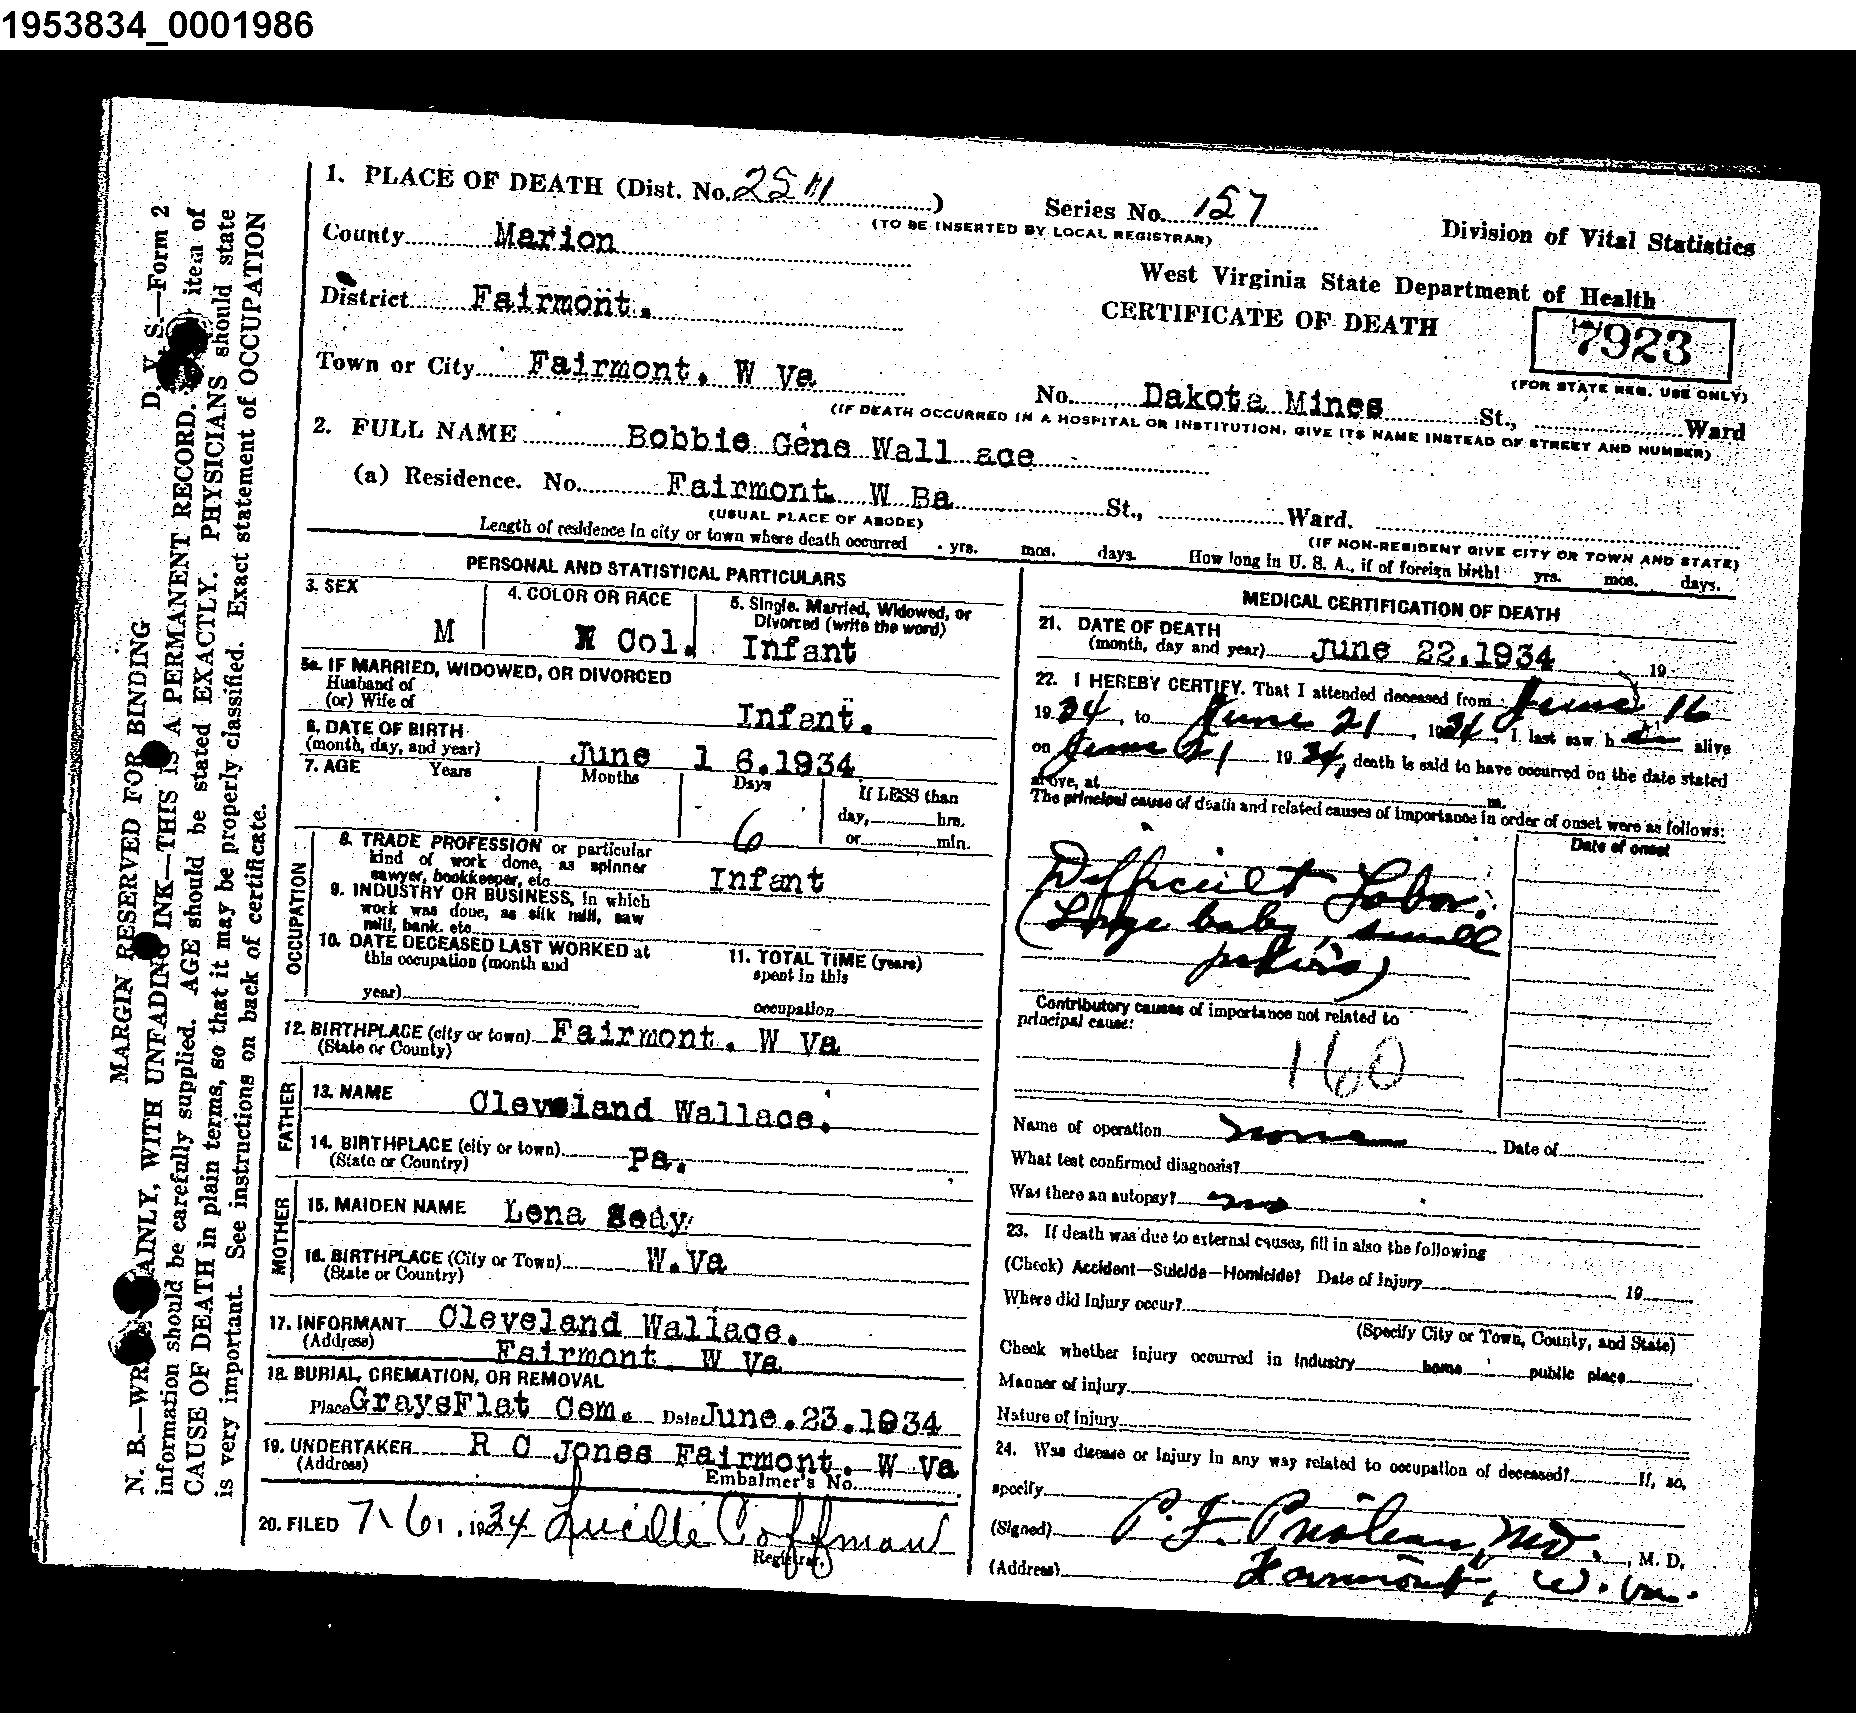 1953834_0001986
1. PLACE OF DEATH (Dist. No. ) Series No. 157
(TO BE INSERTED BY LOCAL REGISTRAR)
Division of Vital Statistics
County Marion
West Virginia State Department of Health
District Fairmont.
CERTIFICATE OF DEATH
7923
(FOR STATE REG. USE ONLY)
Town or City Fairmont. W Va No. Dakota Mines St., Ward
(IF DEATH OCCURRED IN A HOSPITAL OR INSTITUTION, GIVE ITS NAME INSTEAD OF STREET AND NUMBER)
2. FULL NAME Bobbie Gene Wall ace
(a) Residence. No. Fairmont. W Ba St., Ward.
(USUAL PLACE OF ABODE) (IF NON-RESIDENT GIVE CITY OR TOWN AND STATE)
Length of residence in city or town where death occurred yrs. mos. days. How long in U. S. A., if of foreign birth? yrs. mos. days.
PERSONAL AND STATISTICAL PARTICULARS
3. SEX M
4. COLOR OR RACE Col.
5. Single, Married, Widowed, or
Divorced (write the word)
Infant
5a. IF MARRIED, WIDOWED, OR DIVORCED
Husband of
(or) Wife of Infant.
6. DATE OF BIRTH
(month, day, and year) June 1 6.1934
7. AGE Years Months Days If LESS than
6 day, hrs.
or min.
OCCUPATION
8. TRADE PROFESSION or particular
kind of work done, as spinner
sawyer, bookkeeper, etc. Infant
9. INDUSTRY OR BUSINESS, in which
work was done, as silk mill, saw
mill, bank. etc
10. DATE DECEASED LAST WORKED at
this occupation (month and
year)
11. TOTAL TIME (years)
spent in this
occupation
12. BIRTHPLACE (city or town) Fairmont. W Va
(State or County)
FATHER
13. NAME Cleveland Wallace.
14. BIRTHPLACE (city or town) Pa.
(State or Country)
MOTHER
15. MAIDEN NAME Lena Sedy
16. BIRTHPLACE (City or Town) W.Va
(State or Country)
17. INFORMANT Cleveland Wallace.
(Address) Fairmont. W Va
18. BURIAL, CREMATION, OR REMOVAL
Place GraysFlat Cem. Date June.23.1934
19. UNDERTAKER R C Jones Fairmont. W Va
(Address) Embalmer's No.
20. FILED 7-6, 1934 Lucille Coffman
Registrar.
MEDICAL CERTIFICATION OF DEATH
21. DATE OF DEATH
(month, day and year) June 22.1934 19
22. I HEREBY CERTIFY. That I attended deceased from June 16
1934, to June 21, 1934, I last saw h alive
on June 21 1934, death is said to have occurred on the date stated
above, at m.
The principal cause of death and related causes of importance in order of onset were as follows:
Date of onset
Difficult Labor.
(Large baby, small
pelvis)
Contributory causes of importance not related to
principal cause:
160
Name of operation none Date of
What test confirmed diagnosis?
Was there an autopsy? no
23. If death was due to external causes, fill in also the following
(Check) Accident—Suicide—Homicide? Date of Injury 19
Where did Injury occur?
(Specify City or Town, County, and State)
Check whether injury occurred in industry home public place
Manner of injury
Nature of injury
24. Was disease or injury in any way related to occupation of deceased? If, so,
specify
(Signed) P. F. Prioleau, MD. , M. D.
(Address) Fairmont, W. Va.
MARGIN RESERVED FOR BINDING D. V. S.—Form 2
N. B.—WRITE PLAINLY, WITH UNFADING INK—THIS IS A PERMANENT RECORD. item of
information should be carefully supplied. AGE should be stated EXACTLY. PHYSICIANS should state
CAUSE OF DEATH in plain terms, so that it may be properly classified. Exact statement of OCCUPATION
is very important. See instructions on back of certificate.